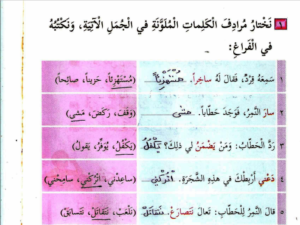 نَخْتارُ مُرادِفَ الْكَلِماتِ الْمُلَوَّنَةِ في الْجُمَلِ الْآتِيَةِ، وَنَكْتُبُهُ
في الْفَراغِ:
١ سَمِعَهُ قِرْدٌ، فَقالَ لَهُ ساخِراً: مُسْتَهْزِئاً (مُسْتَهْزِئاً، حَزيناً، صائِحاً)
٢ سارَ النَّمِرُ، فَوَجَدَ حَطّاباً. مشى (وَقَفَ، رَكَضَ، مَشى)
٣ رَدَّ الْحَطّابُ: وَمَنْ يَضْمَنُ لي ذلِكَ؟ يَكْفُلُ (يَكْفُلُ، يُوَفِّرُ، يَقولُ)
٤ دَعْني أَرْبِطْكَ في هذِهِ الشَّجَرَةِ. اتركني (ساعِدْني، اتْرُكْني، سامِحْني)
٥ قالَ النَّمِرُ لِلْحَطّابِ: تَعالَ نَتَصارَعْ. نتقاتل (نَلْعَبْ، نَتَقاتَلْ، نَتَسابَقْ)